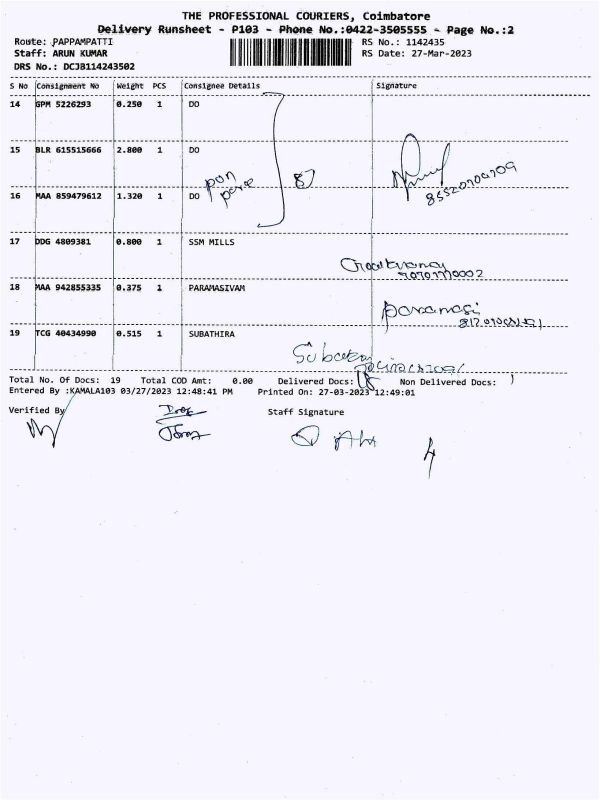 THE PROFESSIONAL COURIERS, Coimbatore
Delivery Runsheet - P103 - Phone No.:0422-3505555 - Page No.:2
Route: PAPPAMPATTI RS No.: 1142435
Staff: ARUN KUMAR RS Date: 27-Mar-2023
DRS No.: DCJB114243502
S No Consignment No Weight PCS Consignee Details Signature
14 GPM 5226293 0.250 1 DO
15 BLR 615515666 2.800 1 DO
pon 87
pare
16 MAA 859479612 1.320 1 DO
17 DDG 4809381 0.800 1 SSM MILLS
18 MAA 942855335 0.375 1 PARAMASIVAM
Paramasi
19 TCG 40434990 0.515 1 SUBATHIRA
Total No. Of Docs: 19 Total COD Amt: 0.00 Delivered Docs: 18 Non Delivered Docs: 1
Entered By :KAMALA103 03/27/2023 12:48:41 PM Printed On: 27-03-2023 12:49:01
Verified By Staff Signature
4